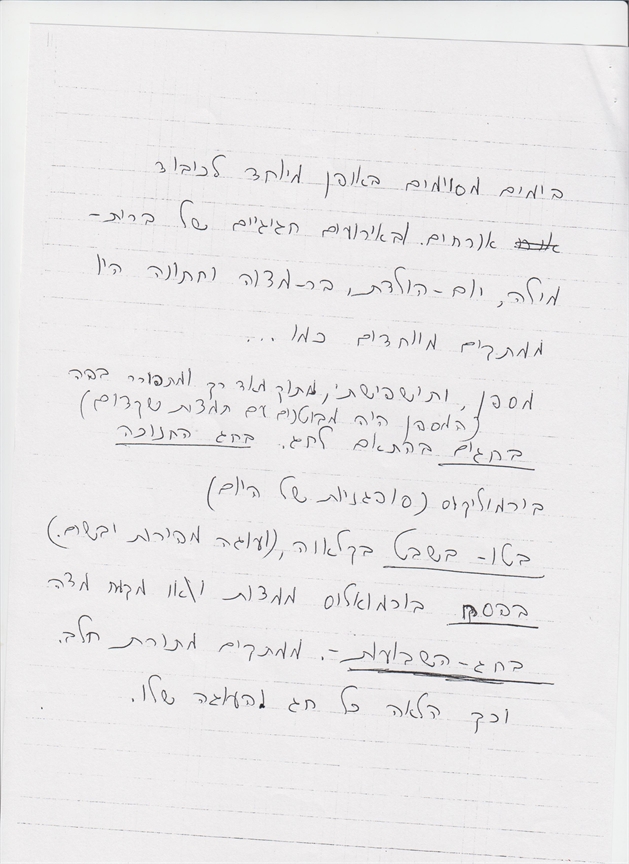 בימים מסוימים באופן מיוחד לכיבוד
אורחים. ובאירועים חגיגיים של ברית-
מילה, יום-הולדת, בר-מצוה וחתונה היו
ממתקים מיוחדים כמו ...
מספן, ותישפישתי, מתוק מאד רק ומתפורר בפה
(המספן היה מבוטנים עם תמצית שקדים)
בחגים בהתאם לחג. בחג החנוכה
בירמוליקוס (סופגניות של היום)
בטו-בשבט בקלאווה, (ועוגה מפירות יבשים.)
בפסח בורמואלוס ממצות ו/או מקמח מצה
בחג-השבועות -. ממתקים מתורת חלב.
וכך הלאה כל חג והעוגה שלו.